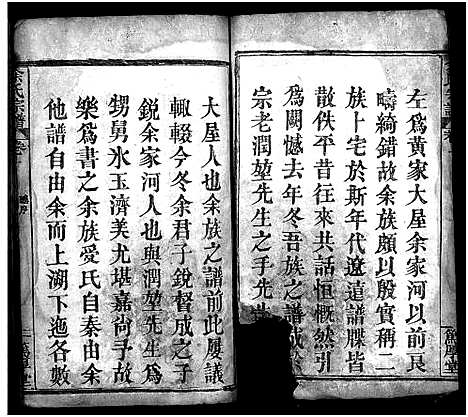 左為黃家大屋余家河以前良
疇綺錯故余族頗以殷實稱二
族卜宅於斯年代遼遠譜牒皆
散佚平昔往共話恒慨然引
為闕憾去年冬吾族之譜成於
宗老潤堇先生之手先
大屋人也余族之譜前此屢議
輒輟今冬余君子銳督成之子
銳余家河人也與潤堇先生為
甥舅氷玉濟美尤堪嘉尚予
樂為書之余族受氏自秦由余
他譜自由余而上溯下迤各數
余氏宗譜